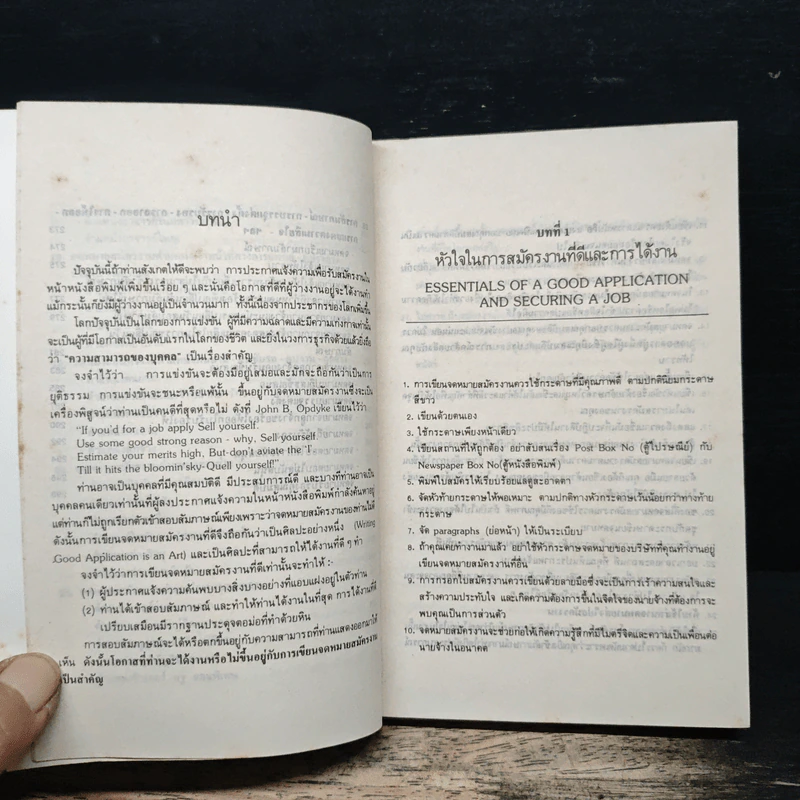 บทนำ
ปัจจุบันนี้ถ้าท่านสังเกตให้ดีจะพบว่า การประกาศแจ้งความเพื่อรับสมัครงานใน
หน้าหนังสือพิมพ์เพิ่มขึ้นเรื่อย ๆ และนั่นคือโอกาสที่ดีที่ผู้ว่างงานอยู่จะได้งานทำ
แม้กระนั้นก็ยังมีผู้ว่างงานอยู่เป็นจำนวนมาก ทั้งนี้เนื่องจากประชากรของโลกเพิ่มขึ้น
โลกปัจจุบันเป็นโลกของการแข่งขัน ผู้ที่มีความฉลาดและมีความเก่งกาจเท่านั้น
จะเป็นผู้ที่มีโอกาสเป็นอันดับแรกในโลกของชีวิต และยิ่งในวงการธุรกิจด้วยแล้วยิ่งถือ
ว่า "ความสามารถของบุคคล" เป็นเรื่องสำคัญ
จงจำไว้ว่า การแข่งขันจะต้องมีอยู่เสมอและมักจะถือกันว่าเป็นการ
ยุติธรรม การแข่งขันจะชนะหรือแพ้นั้น ขึ้นอยู่กับจดหมายสมัครงานซึ่งจะเป็น
เครื่องพิสูจน์ว่าท่านเป็นคนดีที่สุดหรือไม่ ดังที่ John B, Opdyke เขียนไว้ว่า
"If you'd for a job apply Sell yourself.
Use some good strong reason - why, Sell yourself.
Estimate your merits high, But-don't aviate the "I"
Till it hits the bloomin'sky-Quell yourself!"
ท่านอาจเป็นบุคคลที่มีคุณสมบัติดี มีประสบการณ์ดี และบางทีท่านอาจเป็น
บุคคลคนเดียวเท่านั้นที่ผู้ลงประกาศแจ้งความในหน้าหนังสือพิมพ์กำลังต้นหาอยู่
แต่ท่านก็ไม่ถูกเรียกตัวเข้าสอบสัมภาษณ์เพียงเพราะว่าจดหมายสมัครงานของท่านไม่ดี
ดังนั้นการเขียนจดหมายสมัครงานที่ดีจึงถือกันว่าเป็นศิลปะอย่างหนึ่ง (Writing
Good Application is an Art) และเป็นศิลปะที่สามารถให้ได้งานที่ดี ๆ ทำ
จงจำไว้ว่าการเขียนจดหมายสมัครงานที่ดีเท่านั้นจะทำให้ :-
(1) ผู้ประกาศแจ้งความค้นพบบางสิ่งบางอย่างที่แอบแฝงอยู่ในตัวท่าน
(2) ท่านได้เข้าสอบสัมภาษณ์ และทำให้ท่านได้งานในที่สุด การได้งานที่ดี
เปรียบเสมือนมีรากฐานประดุจตอม่อที่ทำด้วยหิน
การสอบสัมภาษณ์จะได้หรือตกขึ้นอยู่กับความสามารถที่ท่านแสดงออกมาให้
เห็น ดังนั้นโอกาสที่ท่านจะได้งานหรือไม่ขึ้นอยู่กับการเขียนจดหมายสมัครงาน
เป็นสำคัญ
บทที่ 1
หัวใจในการสมัครงานที่ดีและการได้งาน
ESSENTIALS OF A GOOD APPLICATION
AND SECURING A JOB
1. การเขียนจดหมายสมัครงานควรใช้กระดาษที่มีคุณภาพดี ตามปกตินิยมกระดาษ
สีขาว
2. เขียนด้วยตนเอง
3. ใช้กระดาษเพียงหน้าเดียว
4. เขียนสถานที่ให้ถูกต้อง อย่าสับสนเรื่อง Post Box No (ตู้ไปรษณีย์) กับ
Newspaper Box No(ตู้หนังสือพิมพ์)
5. พิมพ์ใบสมัครให้เรียบร้อยและดูสะอาดตา
6. จัดหัวท้ายกระดาษให้พอเหมาะ ตามปกติทางหัวกระดาษเว้นน้อยกว่าทางท้าย
กระดาษ
7. จัด paragraphs (ย่อหน้า) ให้เป็นระเบียบ
8. ถ้าคุณเคยทำงานมาแล้ว อย่าใช้หัวกระดาษจดหมายของบริษัทที่คุณทำงานอยู่
เขียนจดหมายสมัครงานที่อื่น
9. การกรอกใบสมัครงานควรเขียนด้วยลายมือซึ่งจะเป็นการเร้าความสนใจและ
สร้างความประทับใจ และเกิดความต้องการขึ้นในจิตใจของนายจ้างที่ต้องการจะ
พบคุณเป็นการส่วนตัว
10. จดหมายสมัครงานจะช่วยก่อให้เกิดความรู้สึกที่มีไมตรีจิตและความเป็นเพื่อนต่อ
นายจ้างในอนาคต